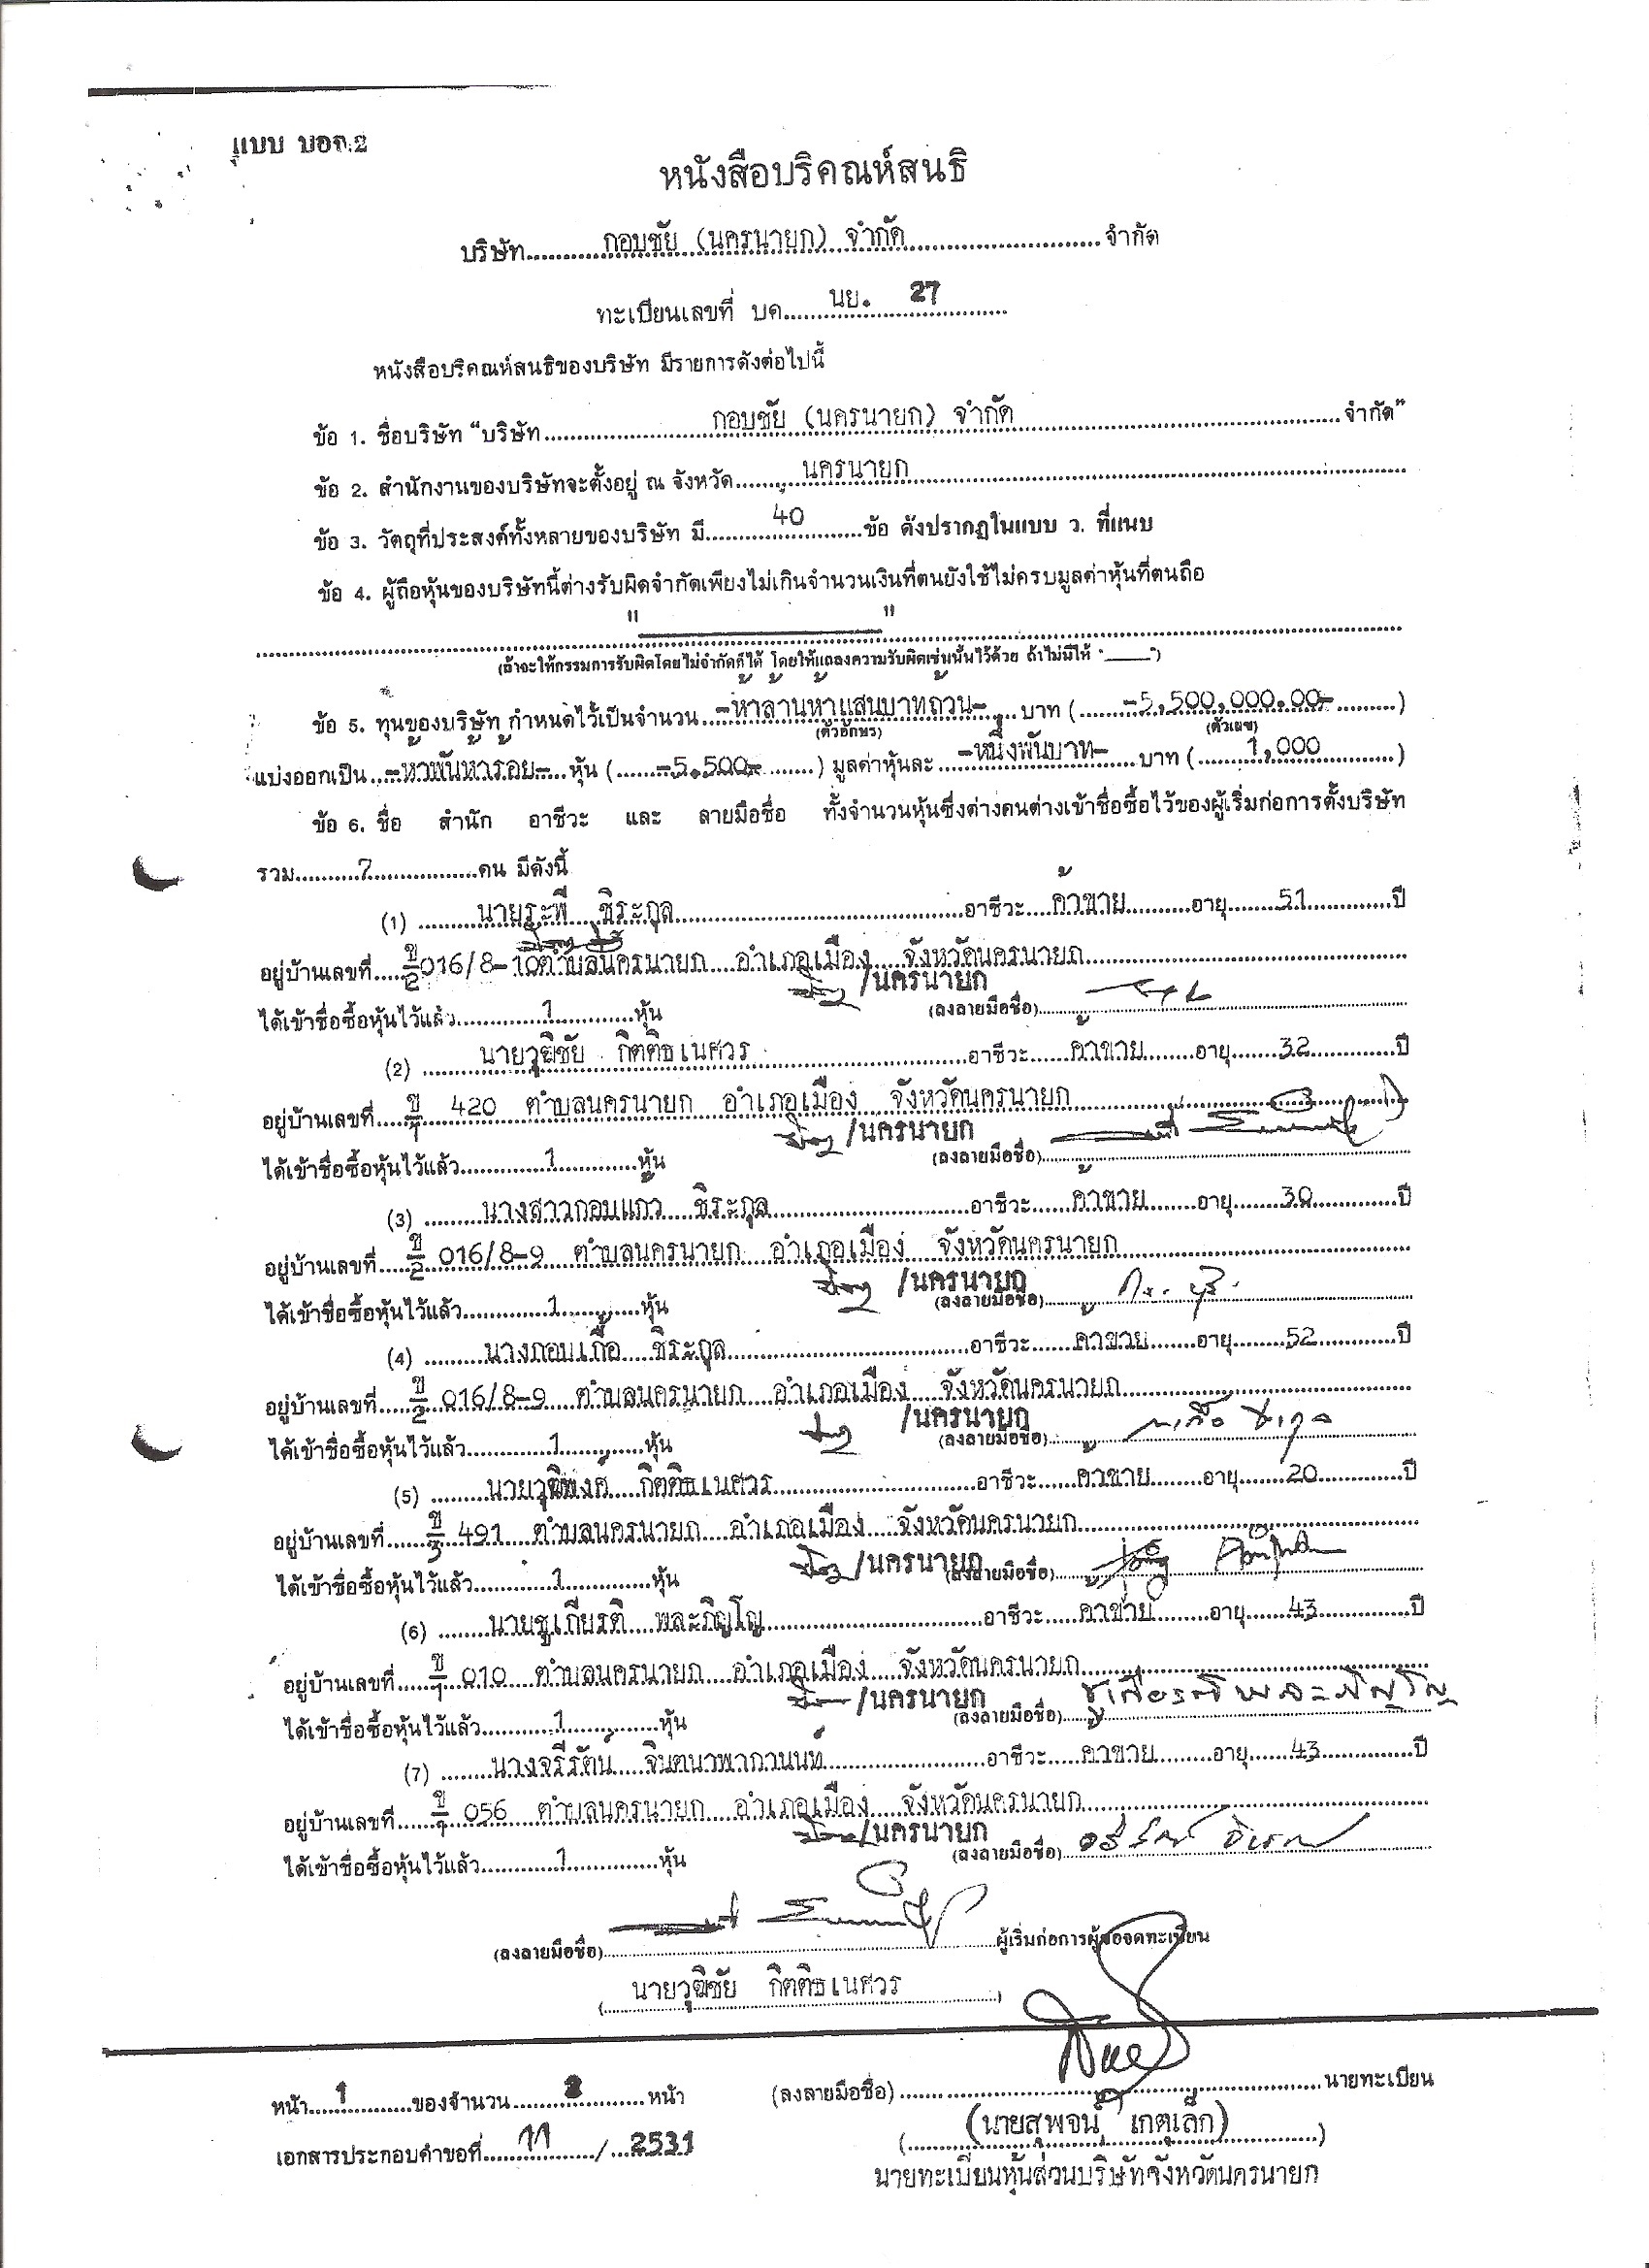 แบบ บอจ.2
หนังสือบริคณห์สนธิ
บริษัท กอบชัย (นครนายก) จำกัด จำกัด
ทะเบียนเลขที่ บค. นย. 27
หนังสือบริคณห์สนธิของบริษัท มีรายการดังต่อไปนี้
ข้อ 1. ชื่อบริษัท "บริษัท กอบชัย (นครนายก) จำกัด จำกัด"
ข้อ 2. สำนักงานของบริษัทจะตั้งอยู่ ณ จังหวัด นครนายก
ข้อ 3. วัตถุที่ประสงค์ทั้งหลายของบริษัท มี 40 ข้อ ดังปรากฏในแบบ ว. ที่แนบ
ข้อ 4. ผู้ถือหุ้นของบริษัทนี้ต่างรับผิดจำกัดเพียงไม่เกินจำนวนเงินที่ตนยังใช้ไม่ครบมูลค่าหุ้นที่ตนถือ
" "
(ถ้าจะให้กรรมการรับผิดโดยไม่จำกัดก็ได้ โดยให้แถลงความรับผิดเช่นนั้นไว้ด้วย ถ้าไม่มีให้ "____")
ข้อ 5. ทุนของบริษัท กำหนดไว้เป็นจำนวน -ห้าล้านห้าแสนบาทถ้วน- บาท ( -5,500,000.00- )
(ตัวอักษร) (ตัวเลข)
แบ่งออกเป็น -ห้าพันห้าร้อย- หุ้น ( -5,500- ) มูลค่าหุ้นละ -หนึ่งพันบาท- บาท ( 1,000 )
ข้อ 6. ชื่อ สำนัก อาชีวะ และ ลายมือชื่อ ทั้งจำนวนหุ้นซึ่งต่างคนต่างเข้าชื่อซื้อไว้ของผู้เริ่มก่อการตั้งบริษัท
รวม 7 คน มีดังนี้
(1) นายระพี ชิระกุล อาชีวะ ค้าขาย อายุ 51 ปี
อยู่บ้านเลขที่ ข/2 016/8-10 ตำบลนครนายก อำเภอเมือง จังหวัดนครนายก
/นครนายก
ได้เข้าชื่อซื้อหุ้นไว้แล้ว 1 หุ้น (ลงลายมือชื่อ)
(2) นายวุฒิชัย กิตติธเนศวร อาชีวะ ค้าขาย อายุ 32 ปี
อยู่บ้านเลขที่ ข/1 420 ตำบลนครนายก อำเภอเมือง จังหวัดนครนายก
/นครนายก
ได้เข้าชื่อซื้อหุ้นไว้แล้ว 1 หุ้น (ลงลายมือชื่อ)
(3) นางสาวกอบแก้ว ชิระกุล อาชีวะ ค้าขาย อายุ ปี
อยู่บ้านเลขที่ ข/2 016/8-9 ตำบลนครนายก อำเภอเมือง จังหวัดนครนายก
/นครนายก
ได้เข้าชื่อซื้อหุ้นไว้แล้ว 1 หุ้น (ลงลายมือชื่อ)
(4) นางกอบเกื้อ ชิระกุล อาชีวะ ค้าขาย อายุ 52 ปี
อยู่บ้านเลขที่ ข/2 016/8-9 ตำบลนครนายก อำเภอเมือง จังหวัดนครนายก
/นครนายก
ได้เข้าชื่อซื้อหุ้นไว้แล้ว 1 หุ้น (ลงลายมือชื่อ)
(5) นายวุฒิพงศ์ กิตติธเนศวร อาชีวะ ค้าขาย อายุ 20 ปี
อยู่บ้านเลขที่ ข/3 491 ตำบลนครนายก อำเภอเมือง จังหวัดนครนายก
/นครนายก
ได้เข้าชื่อซื้อหุ้นไว้แล้ว 1 หุ้น (ลงลายมือชื่อ)
(6) นายชูเกียรติ พละภิญโญ อาชีวะ ค้าขาย อายุ 43 ปี
อยู่บ้านเลขที่ ข/1 010 ตำบลนครนายก อำเภอเมือง จังหวัดนครนายก
/นครนายก
ได้เข้าชื่อซื้อหุ้นไว้แล้ว 1 หุ้น (ลงลายมือชื่อ) ชูเกียรติ พละภิญโญ
(7) นางจรีรัตน์ จินตนาพากานนท์ อาชีวะ ค้าขาย อายุ 43 ปี
อยู่บ้านเลขที่ ข/1 056 ตำบลนครนายก อำเภอเมือง จังหวัดนครนายก
/นครนายก
ได้เข้าชื่อซื้อหุ้นไว้แล้ว 1 หุ้น (ลงลายมือชื่อ)
(ลงลายมือชื่อ) ผู้เริ่มก่อการผู้ขอจดทะเบียน
( นายวุฒิชัย กิตติธเนศวร )
หน้า 1 ของจำนวน 2 หน้า (ลงลายมือชื่อ) นายทะเบียน
( (นายสุพจน์ เกตุเล็ก) )
เอกสารประกอบคำขอที่ 11 / 2531
นายทะเบียนหุ้นส่วนบริษัทจังหวัดนครนายก